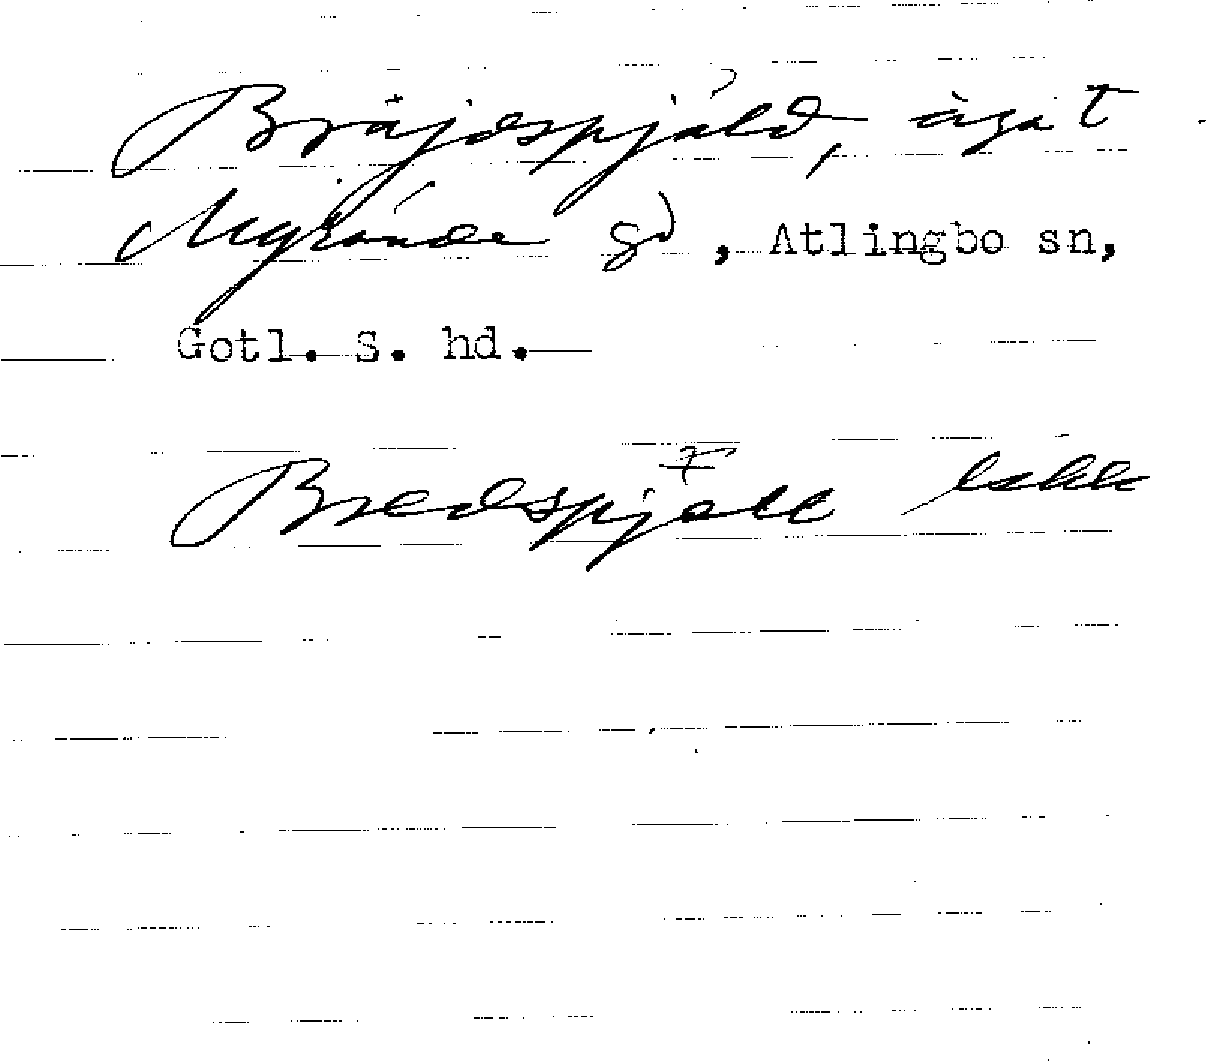 Bräjdspjäld, ägat
Nygårde gd, Atlingbo sn,
Gotl. S. hd.
Bredspjell